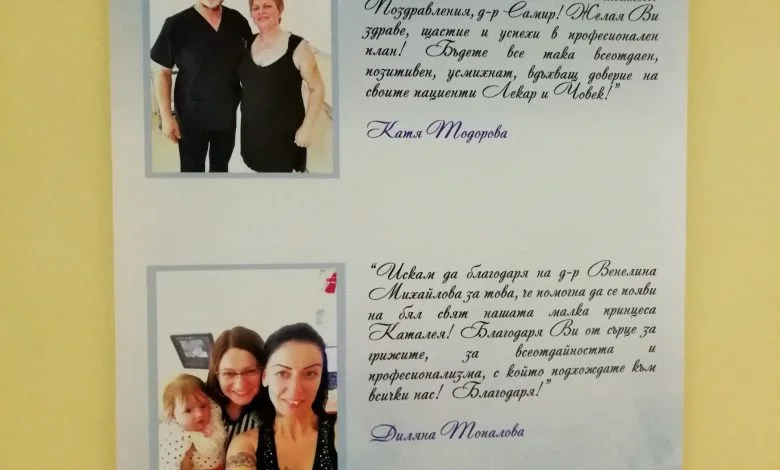 Поздравления, д-р Самир! Желая Ви
здраве, щастие и успехи в професионален
план! Бъдете все така всеотдаен,
позитивен, усмихнат, вдъхващ доверие на
своите пациенти Лекар и Човек!"
Катя Тодорова
"Искам да благодаря на д-р Венелина
Михайлова за това, че помогна да се появи
на бял свят нашата малка принцеса
Каталея! Благодаря Ви от сърце за
грижите, за всеотдайността и
професионализма, с който подхождате към
всички нас! Благодаря!"
Диляна Топалова